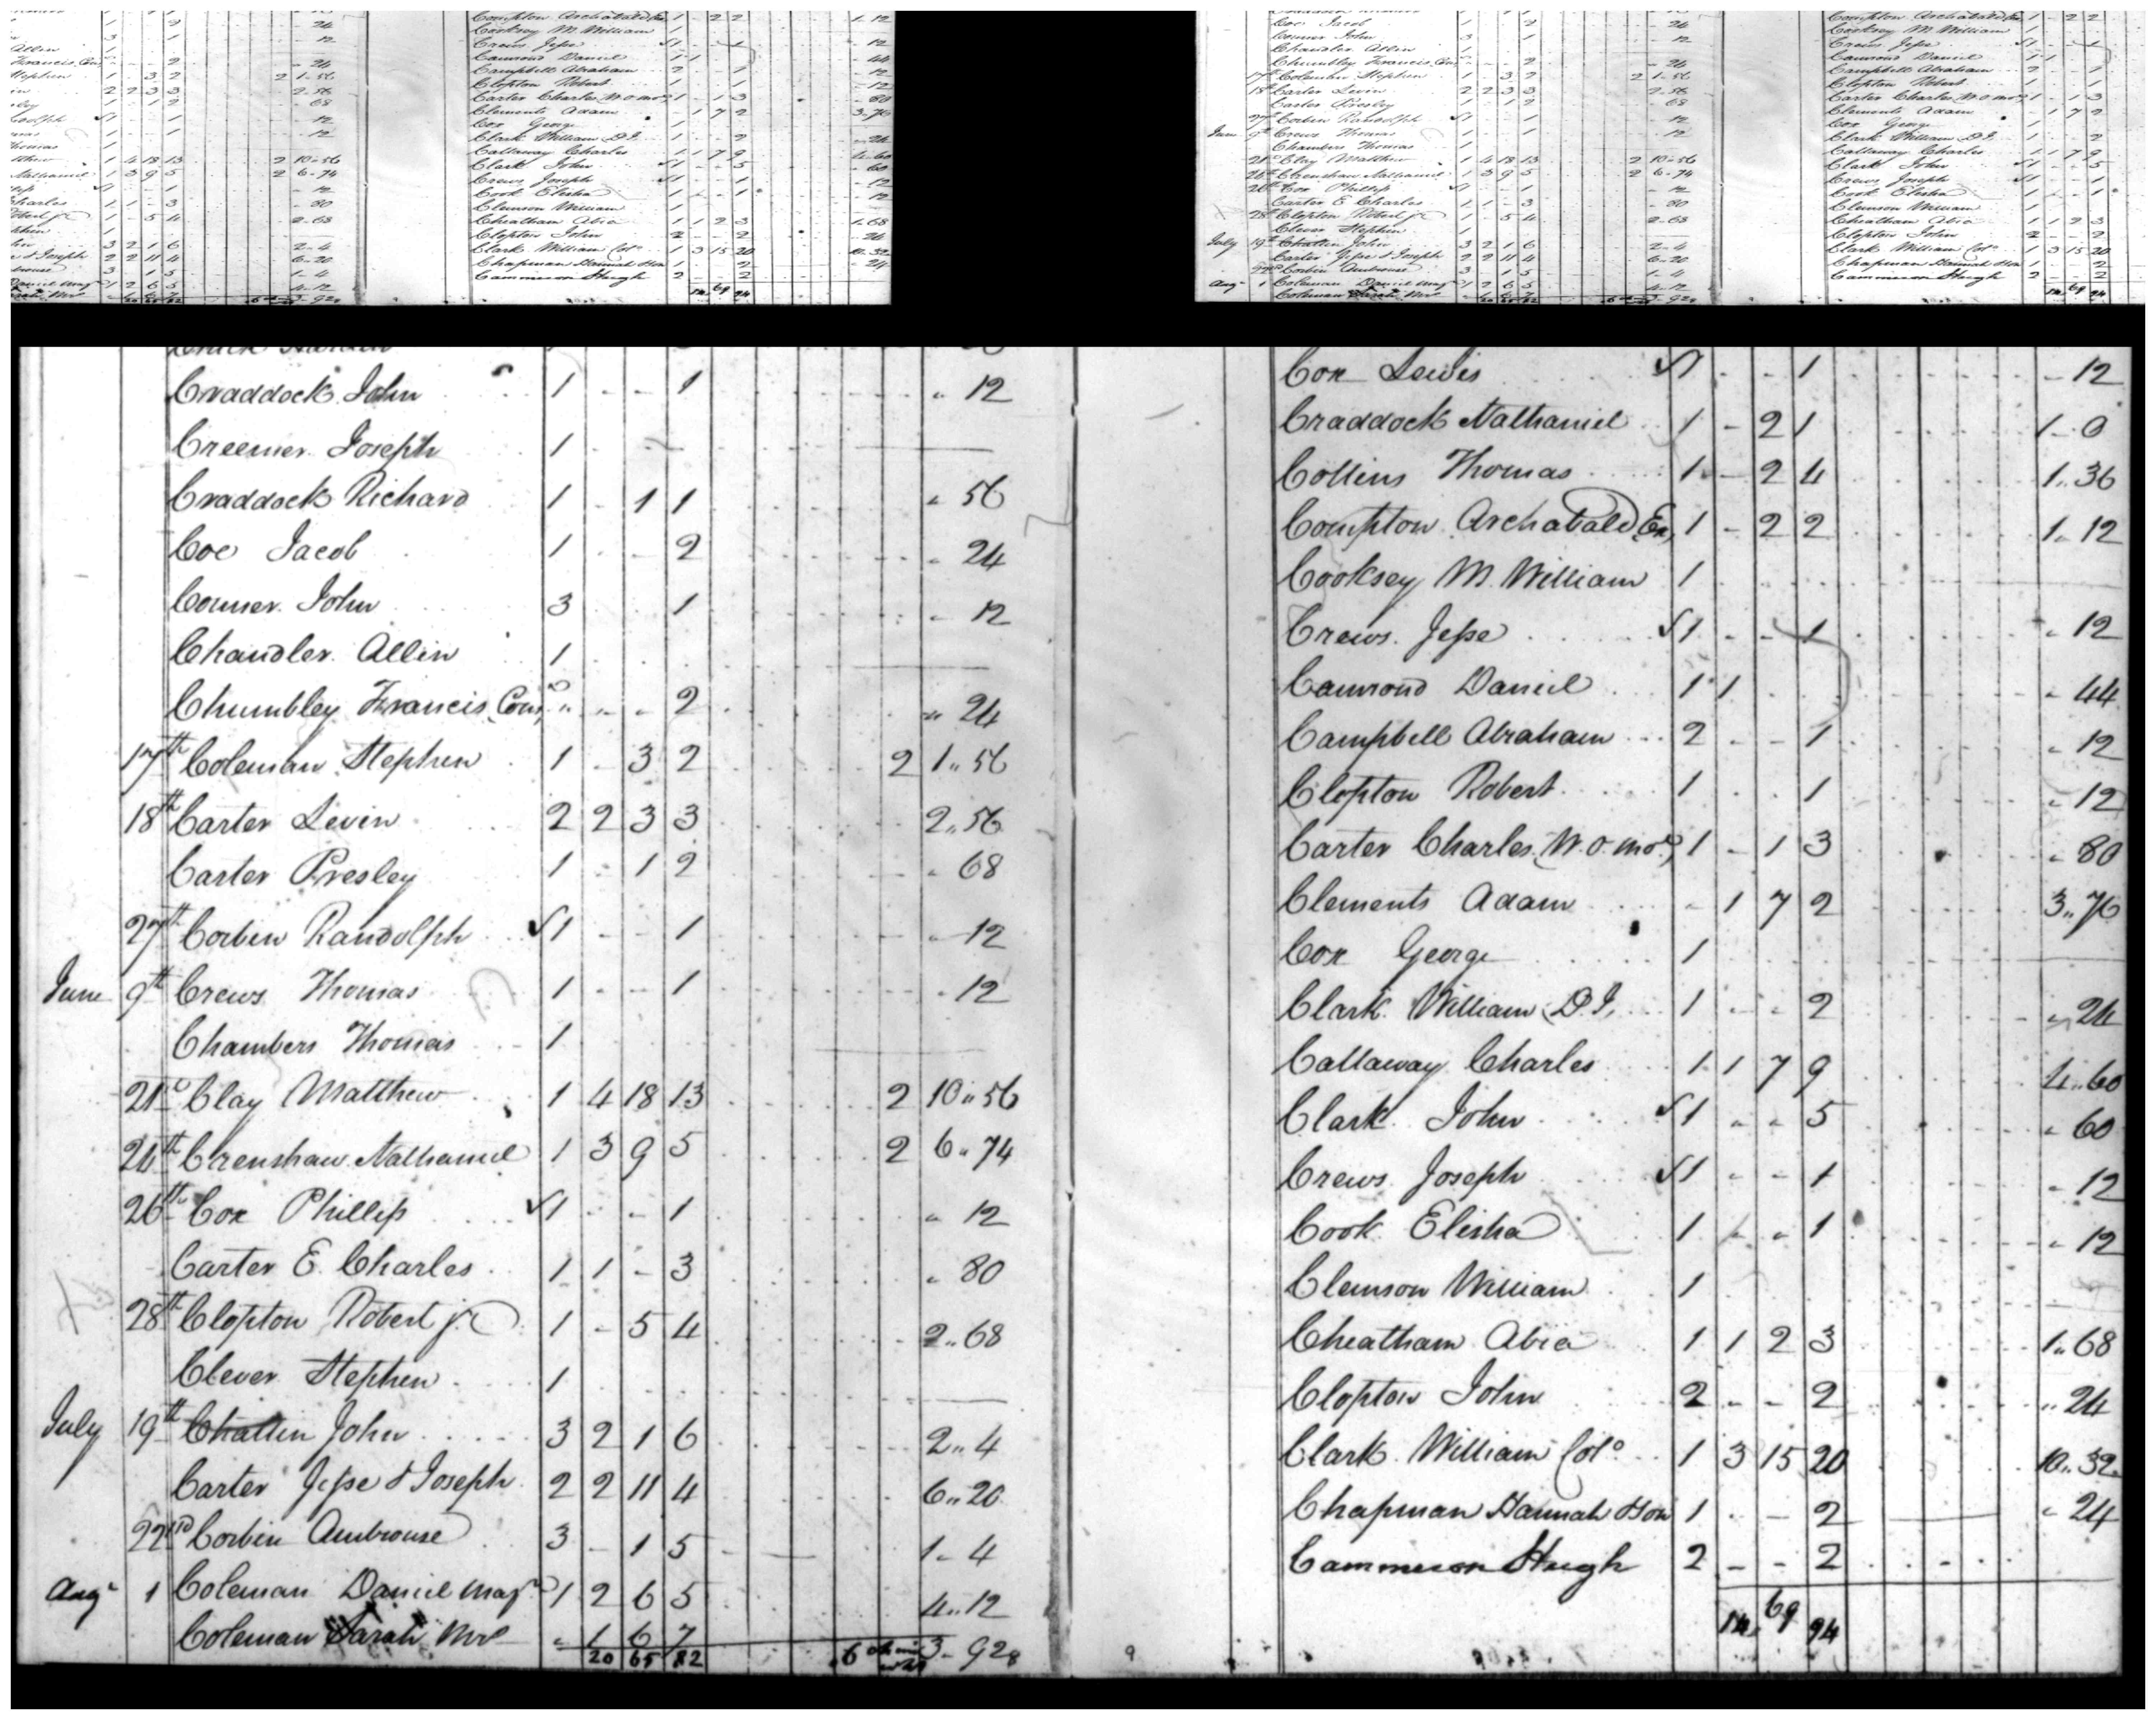 Craddock John 1 - - 1 " 12
Creemer Joseph 1 - -
Craddock Richard 1 - 1 1 " 56
Coe Jacob 1 - - 2 " 24
Conner John 3 1 " 12
Chandler Allin 1
Chumbley Francis Cons " " - 2 " 24
17th Coleman Stephen 1 - 3 2 2 1 " 56
18th Carter Levin 2 2 3 3 2 " 56
Carter Presley 1 - 1 2 " 68
27th Corbin Randolph √1 - - 1 " 12
June 9th Crews Thomas 1 - - 1 " 12
Chambers Thomas 1
21st Clay Matthew 1 4 18 13 2 10 " 56
24th Crenshaw Nathaniel 1 3 9 5 2 6 " 74
26th Cox Phillip √1 - - 1 " 12
Carter E. Charles 1 1 - 3 " 80
28th Clopton Robert jr. 1 - 5 4 2 " 68
Clever Stephen 1
July 19th Chattin John 3 2 1 6 2 " 4
Carter Jesse & Joseph 2 2 11 4 6 " 20
22nd Corbin Ambrouse 3 - 1 5 1 - 4
Augt 1 Coleman Daniel Majr 1 2 6 5 4 " 12
Coleman Sarah Mrs " 1 6 7 3 - 92
20 65 82 6
Cox Lewis √1 - - 1 - 12
Craddock Nathaniel 1 - 2 1 1 - 0
Collins Thomas 1 - 2 4 1 " 36
Compton Archabald Ex, 1 - 2 2 1 " 12
Cooksey M. William 1
Crews Jesse √1 - - 1 " 12
Camrond Daniel 1 1 " 44
Campbell Abraham 2 - - 1 " 12
Clopton Robert 1 1 " 12
Carter Charles (W. o. mo.) 1 - 1 3 " 80
Clements Adam - 1 7 2 3 " 76
Cox George 1
Clark William (D.I. 1 - - 2 " 24
Callaway Charles 1 1 7 9 4 " 60
Clark John √1 " " 5 " 60
Crews Joseph √1 - - 1 - 12
Cook Elisha 1 - - 1 " 12
Clemson William 1
Cheatham Abia 1 1 2 3 1 " 68
Clopton John 2 - - 2 " 24
Clark William Colo 1 3 15 20 10 " 32
Chapman Hannah & son 1 - - 2 " 24
Cammeron Hugh 2 - - 2
14 69 94